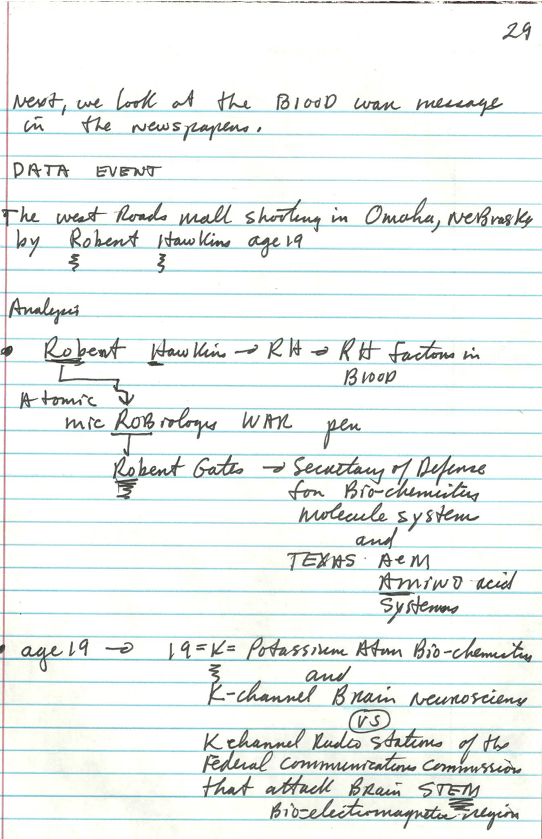 29
Next, we look at the BlOOD war message
in the newspapers.
DATA EVENT
The west Roads mall shooting in Omaha, NeBraska
by Robert Hawkins age 19
Analysis
• Robert Hawkins → RH → RH factors in
BlOOD
Atomic
mic ROBiologis WAR per
Robert Gates → Secretary of Defense
for Bio-chemistry
molecule system
and
TEXAS A&M
AMINO acid
Systems
• age 19 → 19 = K = Potassium Atom Bio-chemistry
and
K-channel Brain Neuroscience
VS
K channel Radio stations of the
Federal Communications Commission
that attack Brain STEM
Bio-electromagnetic region